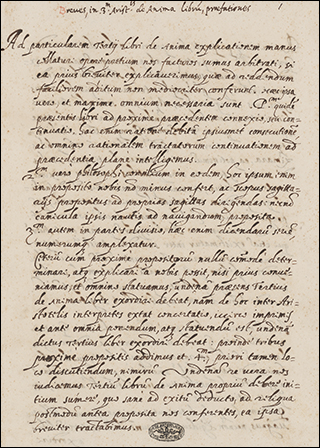 Breves, in 3.m Arist.lis de Anima librū, præfationes
Ad particularem Tertij libri de Anima explicationem manus
collaturi operæpretium nos facturos sumus arbitrati, si
ea prius breviter explicaverimus, quæ ad readendum
faciliorem aditum non mediocriter conferūt, neq ipsa
vero, et maxime omnium necessaria sunt. P.m quidē
præsentis libri ad proxime præcedentem connexio, seu con-
tinuatio, hac enim natione debita ipsiusmet consecutione
ac omnino rationalem tractatorum continuationem ad
præcedentia plane intelligemus.
2.m vero philosophi eorundem in eodem, hoc ipsum enim
in proposito nobis no minus confert, ac scopus sagitta-
rijs propositus ad proprias sagittas dirigendas: nec no
ipsis nautis ad navigandum proposita.
3.m autem in partes divisio, hæc enim dicendarū seriē
numerumq amplexatur.
Cæterū cum proxime propositorū nulla comode deter-
minari, atq explicari a nobis possit, nisi prius conve-
niamus, et omnino statuamus, undenā præsens Tertius
de Anima liber exordiri debeat, nam de hoc inter Aris-
totelis interpretes extat concertatio, iccirco imprimis
et ante omnia ponendum, atq statuendū est, undenā
dictus Tertius liber exordiri debeat: proinde tribus
proxime propositis addimus et 4.m priori tamen lo-
co discutiendum, nimirū Undenā re vera nos
iudicemus Tertiū librū de Anima proprium debere ini-
tium sumere, quo sane ad exitū deducto, ad reliqua
postmodū antea proposita nos conferentes, ea ipsa
breviter tractabimus.